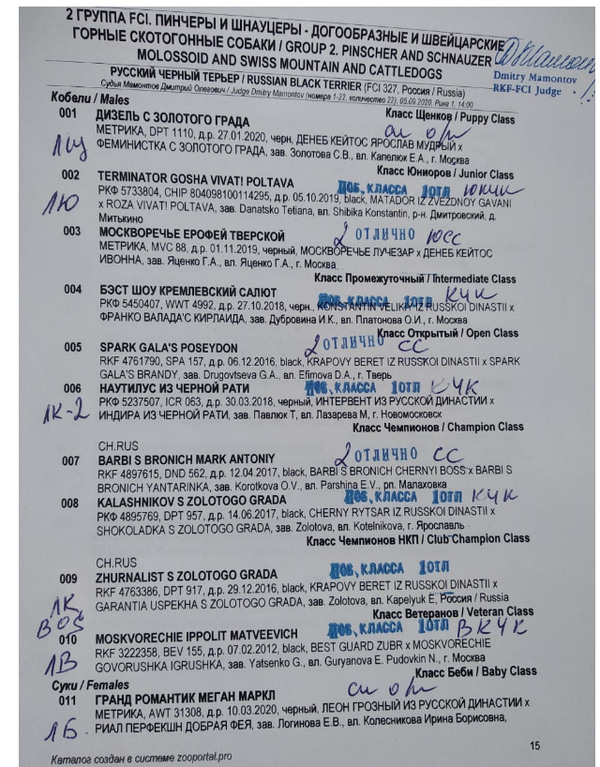 2 ГРУППА FCI. ПИНЧЕРЫ И ШНАУЦЕРЫ - ДОГООБРАЗНЫЕ И ШВЕЙЦАРСКИЕ
ГОРНЫЕ СКОТОГОННЫЕ СОБАКИ / GROUP 2. PINSCHER AND SCHNAUZER
MOLOSSOID AND SWISS MOUNTAIN AND CATTLEDOGS
Dmitry Mamontov
RKF-FCI Judge
РУССКИЙ ЧЕРНЫЙ ТЕРЬЕР / RUSSIAN BLACK TERRIER (FCI 327, Россия / Russia)
Судья Мамонтов Дмитрий Олегович / Judge Dmitry Mamontov (номера 1-22, количество 22), 05.09.2020, Ринг 1, 14:00
Кобели / Males
Класс Щенков / Puppy Class
001 ДИЗЕЛЬ С ЗОЛОТОГО ГРАДА
МЕТРИКА, DPT 1110, д.р. 27.01.2020, черн, ДЕНЕБ КЕЙТОС ЯРОСЛАВ МУДРЫЙ x
ЛЩ ФЕМИНИСТКА С ЗОЛОТОГО ГРАДА, зав. Золотова С.В., вл. Капелюк Е.А., г. Москва
Класс Юниоров / Junior Class
002 TERMINATOR GOSHA VIVAT! POLTAVA ПОБ. КЛАССА 1ОТЛ
ЛЮ РКФ 5733804, CHIP 804098100114295, д.р. 05.10.2019, black, MATADOR IZ ZVEZDNOY GAVANI
x ROZA VIVAT! POLTAVA, зав. Danatsko Tetiana, вл. Shibika Konstantin, р-н. Дмитровский, д.
Митькино
003 МОСКВОРЕЧЬЕ ЕРОФЕЙ ТВЕРСКОЙ 2 ОТЛИЧНО ЮСС
МЕТРИКА, MVC 88, д.р. 01.11.2019, черный, МОСКВОРЕЧЬЕ ЛУЧЕЗАР x ДЕНЕБ КЕЙТОС
ИВОННА, зав. Яценко Г.А., вл. Яценко Г.А., г. Москва
Класс Промежуточный / Intermediate Class
004 БЭСТ ШОУ КРЕМЛЕВСКИЙ САЛЮТ ПОБ. КЛАССА 1ОТЛ КЧК
РКФ 5450407, WWT 4992, д.р. 27.10.2018, черн., KONSTANTIN VELIKIY IZ RUSSKOI DINASTII x
ФРАНКО ВАЛАДА'С КИРЛАИДА, зав. Дубровина И.К., вл. Платонова О.И., г. Москва
Класс Открытый / Open Class
005 SPARK GALA'S POSEYDON 2 ОТЛИЧНО СС
RKF 4761790, SPA 157, д.р. 06.12.2016, black, KRAPOVY BERET IZ RUSSKOI DINASTII x SPARK
GALA'S BRANDY, зав. Drugovtseva G.A., вл. Efimova D.A., г. Тверь
006 НАУТИЛУС ИЗ ЧЕРНОЙ РАТИ ПОБ. КЛАССА 1ОТЛ КЧК
ЛК-2 РКФ 5237507, ICR 063, д.р. 30.03.2018, черный, ИНТЕРВЕНТ ИЗ РУССКОЙ ДИНАСТИИ x
ИНДИРА ИЗ ЧЕРНОЙ РАТИ, зав. Павлюк Т, вл. Лазарева М, г. Новомосковск
Класс Чемпионов / Champion Class
CH.RUS
007 BARBI S BRONICH MARK ANTONIY 2 ОТЛИЧНО СС
RKF 4897615, DND 562, д.р. 12.04.2017, black, BARBI S BRONICH CHERNYI BOSS x BARBI S
BRONICH YANTARINKA, зав. Korotkova O.V., вл. Parshina E.V., рп. Малаховка
008 KALASHNIKOV S ZOLOTOGO GRADA ПОБ. КЛАССА 1ОТЛ КЧК
РКФ 4895769, DPT 957, д.р. 14.06.2017, black, CHERNY RYTSAR IZ RUSSKOI DINASTII x
SHOKOLADKA S ZOLOTOGO GRADA, зав. Zolotova, вл. Kotelnikova, г. Ярославль
Класс Чемпионов НКП / Club Champion Class
CH.RUS
009 ZHURNALIST S ZOLOTOGO GRADA ПОБ. КЛАССА 1ОТЛ
RKF 4763386, DPT 917, д.р. 29.12.2016, black, KRAPOVY BERET IZ RUSSKOI DINASTII x
ЛК GARANTIA USPEKHA S ZOLOTOGO GRADA, зав. Zolotova, вл. Kapelyuk E, Россия / Russia
BOS Класс Ветеранов / Veteran Class
010 MOSKVORECHIE IPPOLIT MATVEEVICH ПОБ. КЛАССА 1ОТЛ ВКЧК
RKF 3222358, BEV 155, д.р. 07.02.2012, black, BEST GUARD ZUBR x MOSKVORECHIE
ЛВ GOVORUSHKA IGRUSHKA, зав. Yatsenko G., вл. Guryanova E. Pudovkin N., г. Москва
Класс Беби / Baby Class
Суки / Females
011 ГРАНД РОМАНТИК МЕГАН МАРКЛ
МЕТРИКА, AWT 31308, д.р. 10.03.2020, черный, ЛЕОН ГРОЗНЫЙ ИЗ РУССКОЙ ДИНАСТИИ x
ЛБ РИАЛ ПЕРФЕКШН ДОБРАЯ ФЕЯ, зав. Логинова Е.В., вл. Колесникова Ирина Борисовна,
15
Каталог создан в системе zooportal.pro